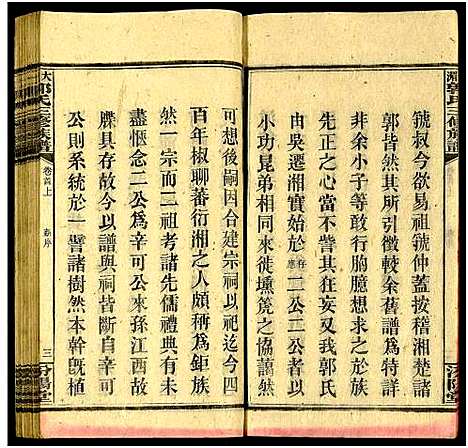 虢叔今欲易祖虢仲蓋按稽湘楚諸
郭皆然其所引徵較余舊譜爲特詳
非余小子等敢行胸臆想求之於族
先正之心當不責其狂妄又我郭氏
由吳遷湘實始於將應二公二公以
小功昆弟相率來徙壎箎之協藹然
可想厥後嗣因合建宗祠以祀迄今四
百年椒聊蕃衍湘之人頗稱爲鉅族
然一宗而二祖考諸先儒禮典亦有未
盡愜念二公爲辛可公來孫江西族
牒具存故今以譜與祠皆斷自辛可
公則系統於一譬諸樹然本幹旣植
大
郭氏三修族譜
卷首上
序
三
汾陽堂
郭氏三修族譜
汾陽堂